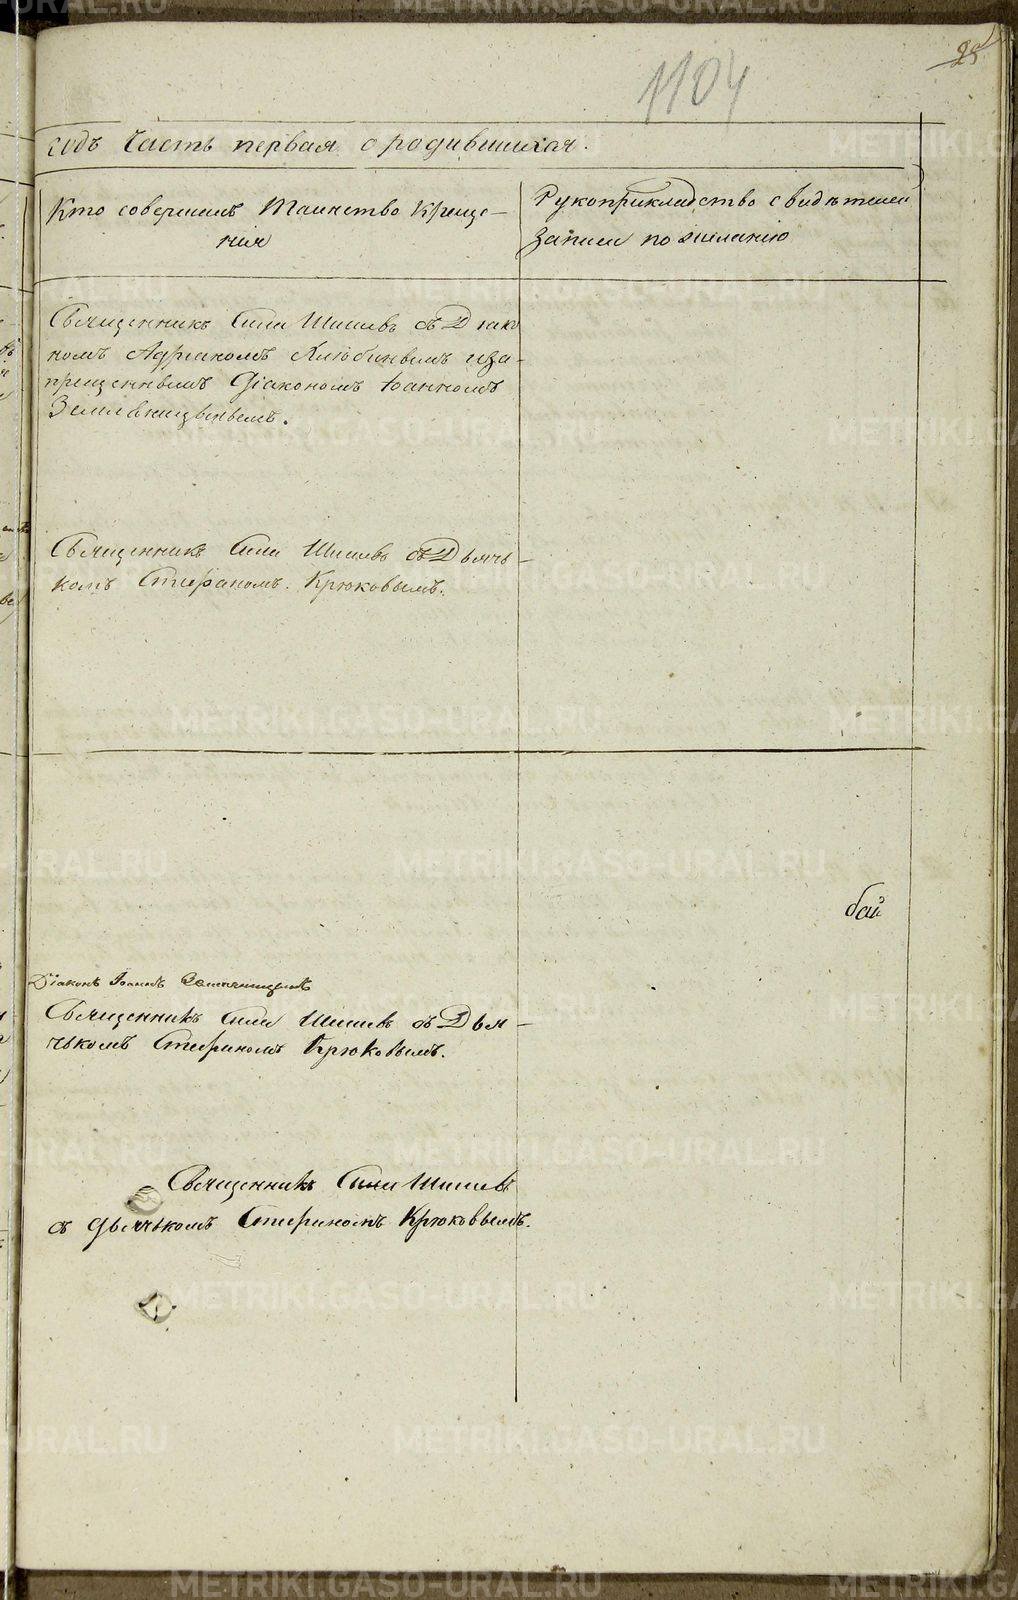 25
1104
годъ Часть первая о родившихся.
Кто совершалъ Таинство Креще-
ния
Рукоприкладство свидѣтелей
Записи по желанію
Священникъ Сила Шишевъ съ Діако
номъ Адріаномъ Любинвымъ и за-
прещеннымъ Діакономъ Іоанномъ
Священникъ Сила Шишевъ съ Дьячь-
комъ Стефаномъ. Крюковымъ.
бай
Діаконъ Іоаннъ
Священникъ Сила Шишевъ съ Дья-
чькомъ Стефаномъ Крюковымъ.
Священникъ Сила Шишевъ
съ дьячькомъ Стефаномъ Крюковымъ.
METRIKI.GASO-URAL.RU